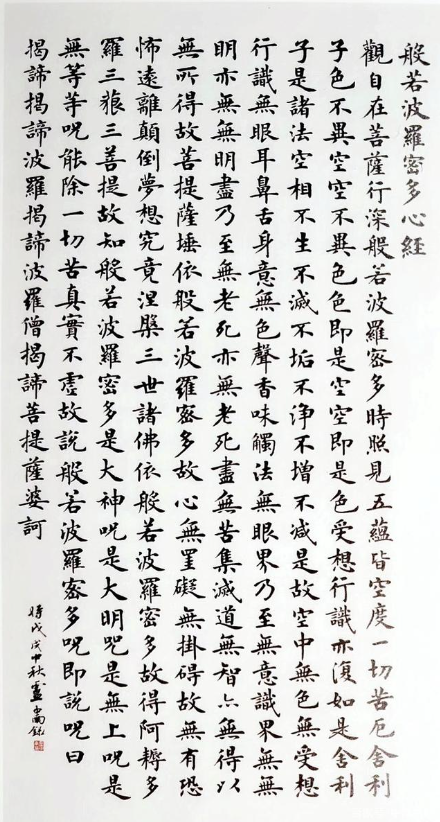 般若波羅密多心經
觀自在菩薩行深般若波羅密多時照見五蘊皆空度一切苦厄舍利
子色不異空空不異色色即是空空即是色受想行識亦復如是舍利
子是諸法空相不生不滅不垢不淨不增不減是故空中無色無受想
行識無眼耳鼻舌身意無色聲香味觸法無眼界乃至無意識界無無
明亦無無明盡乃至無老死亦無老死盡無苦集滅道無智亦無得以
無所得故菩提薩埵依般若波羅密多故心無罣礙無掛碍故無有恐
怖遠離顛倒夢想究竟涅槃三世諸佛依般若波羅密多故得阿耨多
羅三藐三菩提故知般若波羅密多是大神呪是大明咒是無上呪是
無等等呪能除一切苦真實不虛故說般若波羅密多呪即說呪曰
揭諦揭諦波羅揭諦波羅僧揭諦菩提薩婆訶
時戊戌中秋